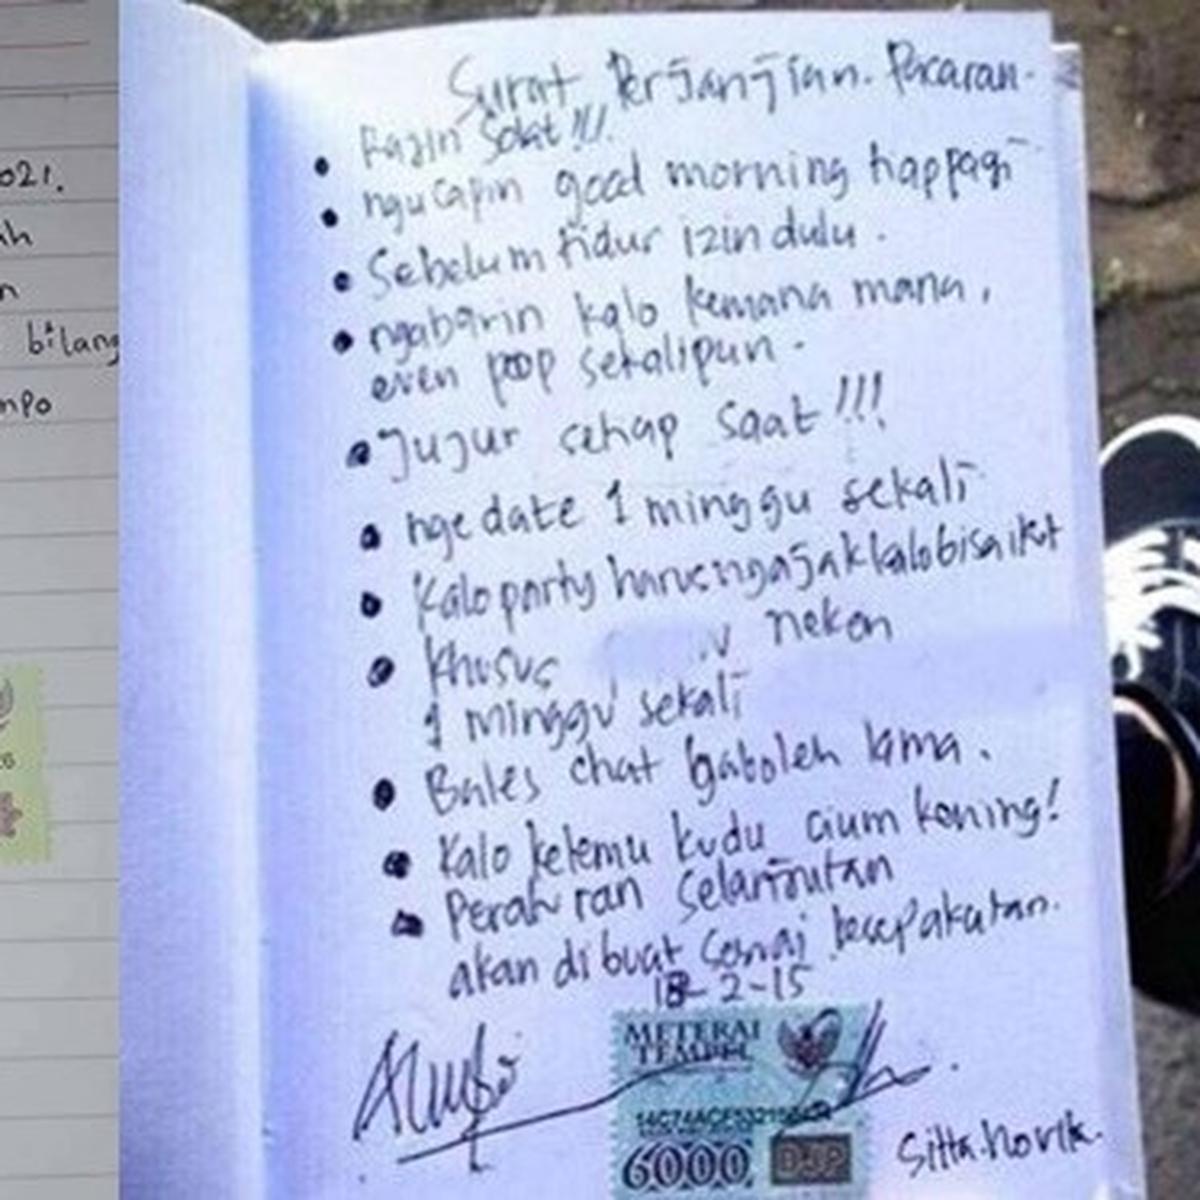 021.
ah
n
bilang
mpo
Surat Perjanjian. Pacaran.
Rajin Solat!!!
ngucapin good morning happagi
Sebelum tidur izin dulu.
ngabarin kalo kemana mana,
even poop sekalipun.
Jujur setiap saat!!!
ngedate 1 minggu sekali
Kalo party harus ngajak kalo bisa ikut
Khusus nekon
1 minggu sekali
Bales chat gaboleh lama.
Kalo ketemu kudu cium kening!
Peraturan selanjutan
akan dibuat sesuai kesepakatan.
18-2-15
METERAI
TEMPEL
6000 DJP
Sitta.Novik.